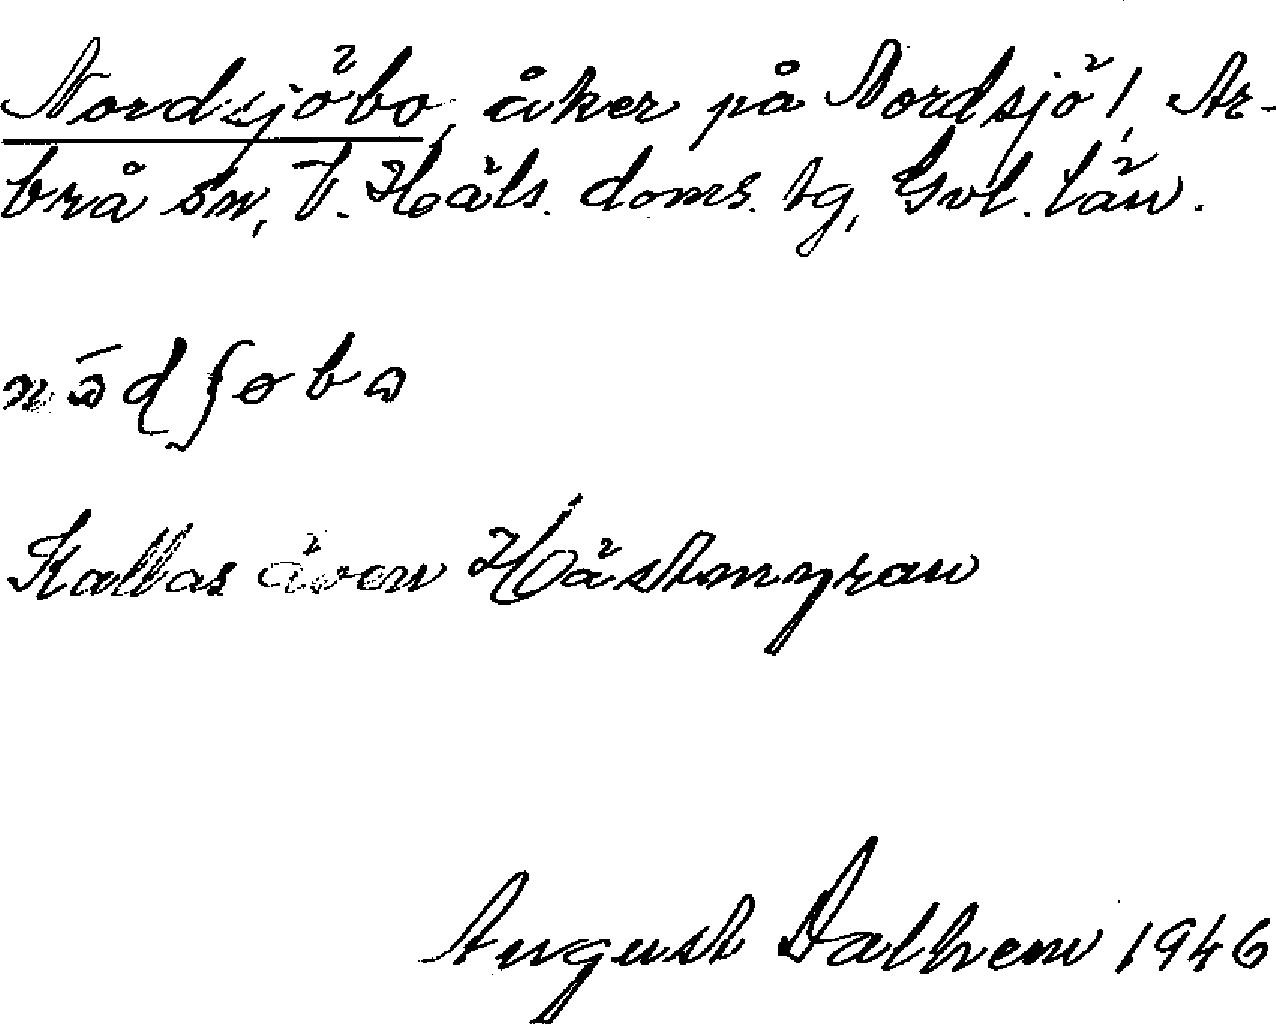 Nordsjöbo, åker på Nordsjö 1, Ar-
brå sn, V. Häls. doms. tg, Gvl. län.
nɷ̄dʃøbɷ
Kallas även Hästmyran
August Dalhem 1946